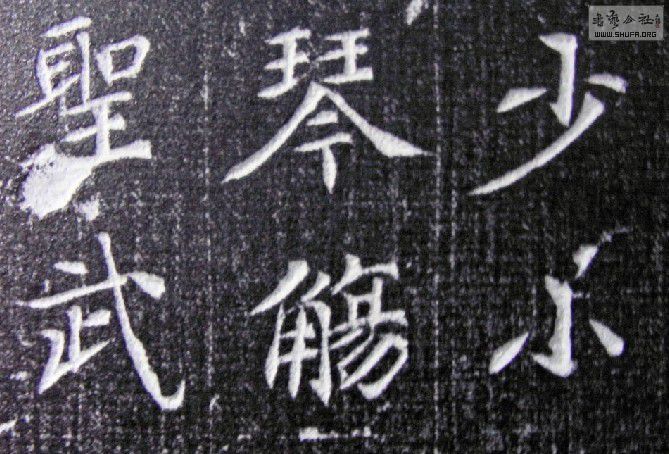 少
琴觴
聖武
書藝公社
WWW.SHUFA.ORG